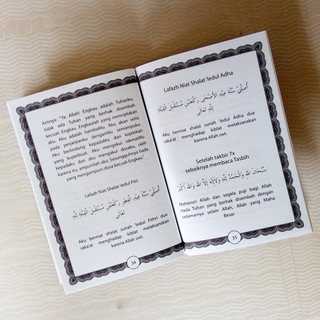 Artinya: "Ya Allah! Engkau adalah Tuhanku,
tidak ada Tuhan yang berhak disembah
kecuali Engkau, Engkaulah yang menciptakan
aku. Aku adalah hambaMu. Aku akan setia
pada perjanjianku denganMu semampuku.
Aku berlindung kepadaMu dari kejelekan
yang kuperbuat. Aku mengakui nikmatMu
kepadaku dan aku mengakui dosaku, oleh
karena itu, ampunilah aku. Sesungguhnya tiada
yang mengampuni dosa kecuali Engkau."
Lafazh Niat Shalat 'Iedul Fitri
أُصَلِّيْ سُنَّةً لِعِيْدِ الْفِطْرِ رَكْعَتَيْنِ مُسْتَقْبِلَ الْقِبْلَةِ لِلّٰهِ
تَعَالَى
Aku berniat shalat sunah 'Iedul Fithri dua
raka'at menghadap kiblat melaksanakan
karena Allah swt.
34
Lafazh Niat Shalat 'Iedul Adha
أُصَلِّيْ سُنَّةً عِيْدِ الْأَضْحَى رَكْعَتَيْنِ مُسْتَقْبِلَ الْقِبْلَةِ لِلّٰهِ
تَعَالَى
Aku berniat shalat sunah 'Iedul Adha dua
raka'at menghadap kiblat melaksanakan
karena Allah
Setelah takbir 7x
sebaiknya membaca Tasbih
سُبْحَانَ اللهِ وَالْحَمْدُ لِلّٰهِ وَلَا إِلٰهَ إِلَّا اللهُ وَاللهُ أَكْبَرُ
Mahasuci Allah dan segala puji bagi Allah
tiada Tuhan yang berhak disembah dengan
sebenarnya selain Allah, Allah yang Maha
Besar
35